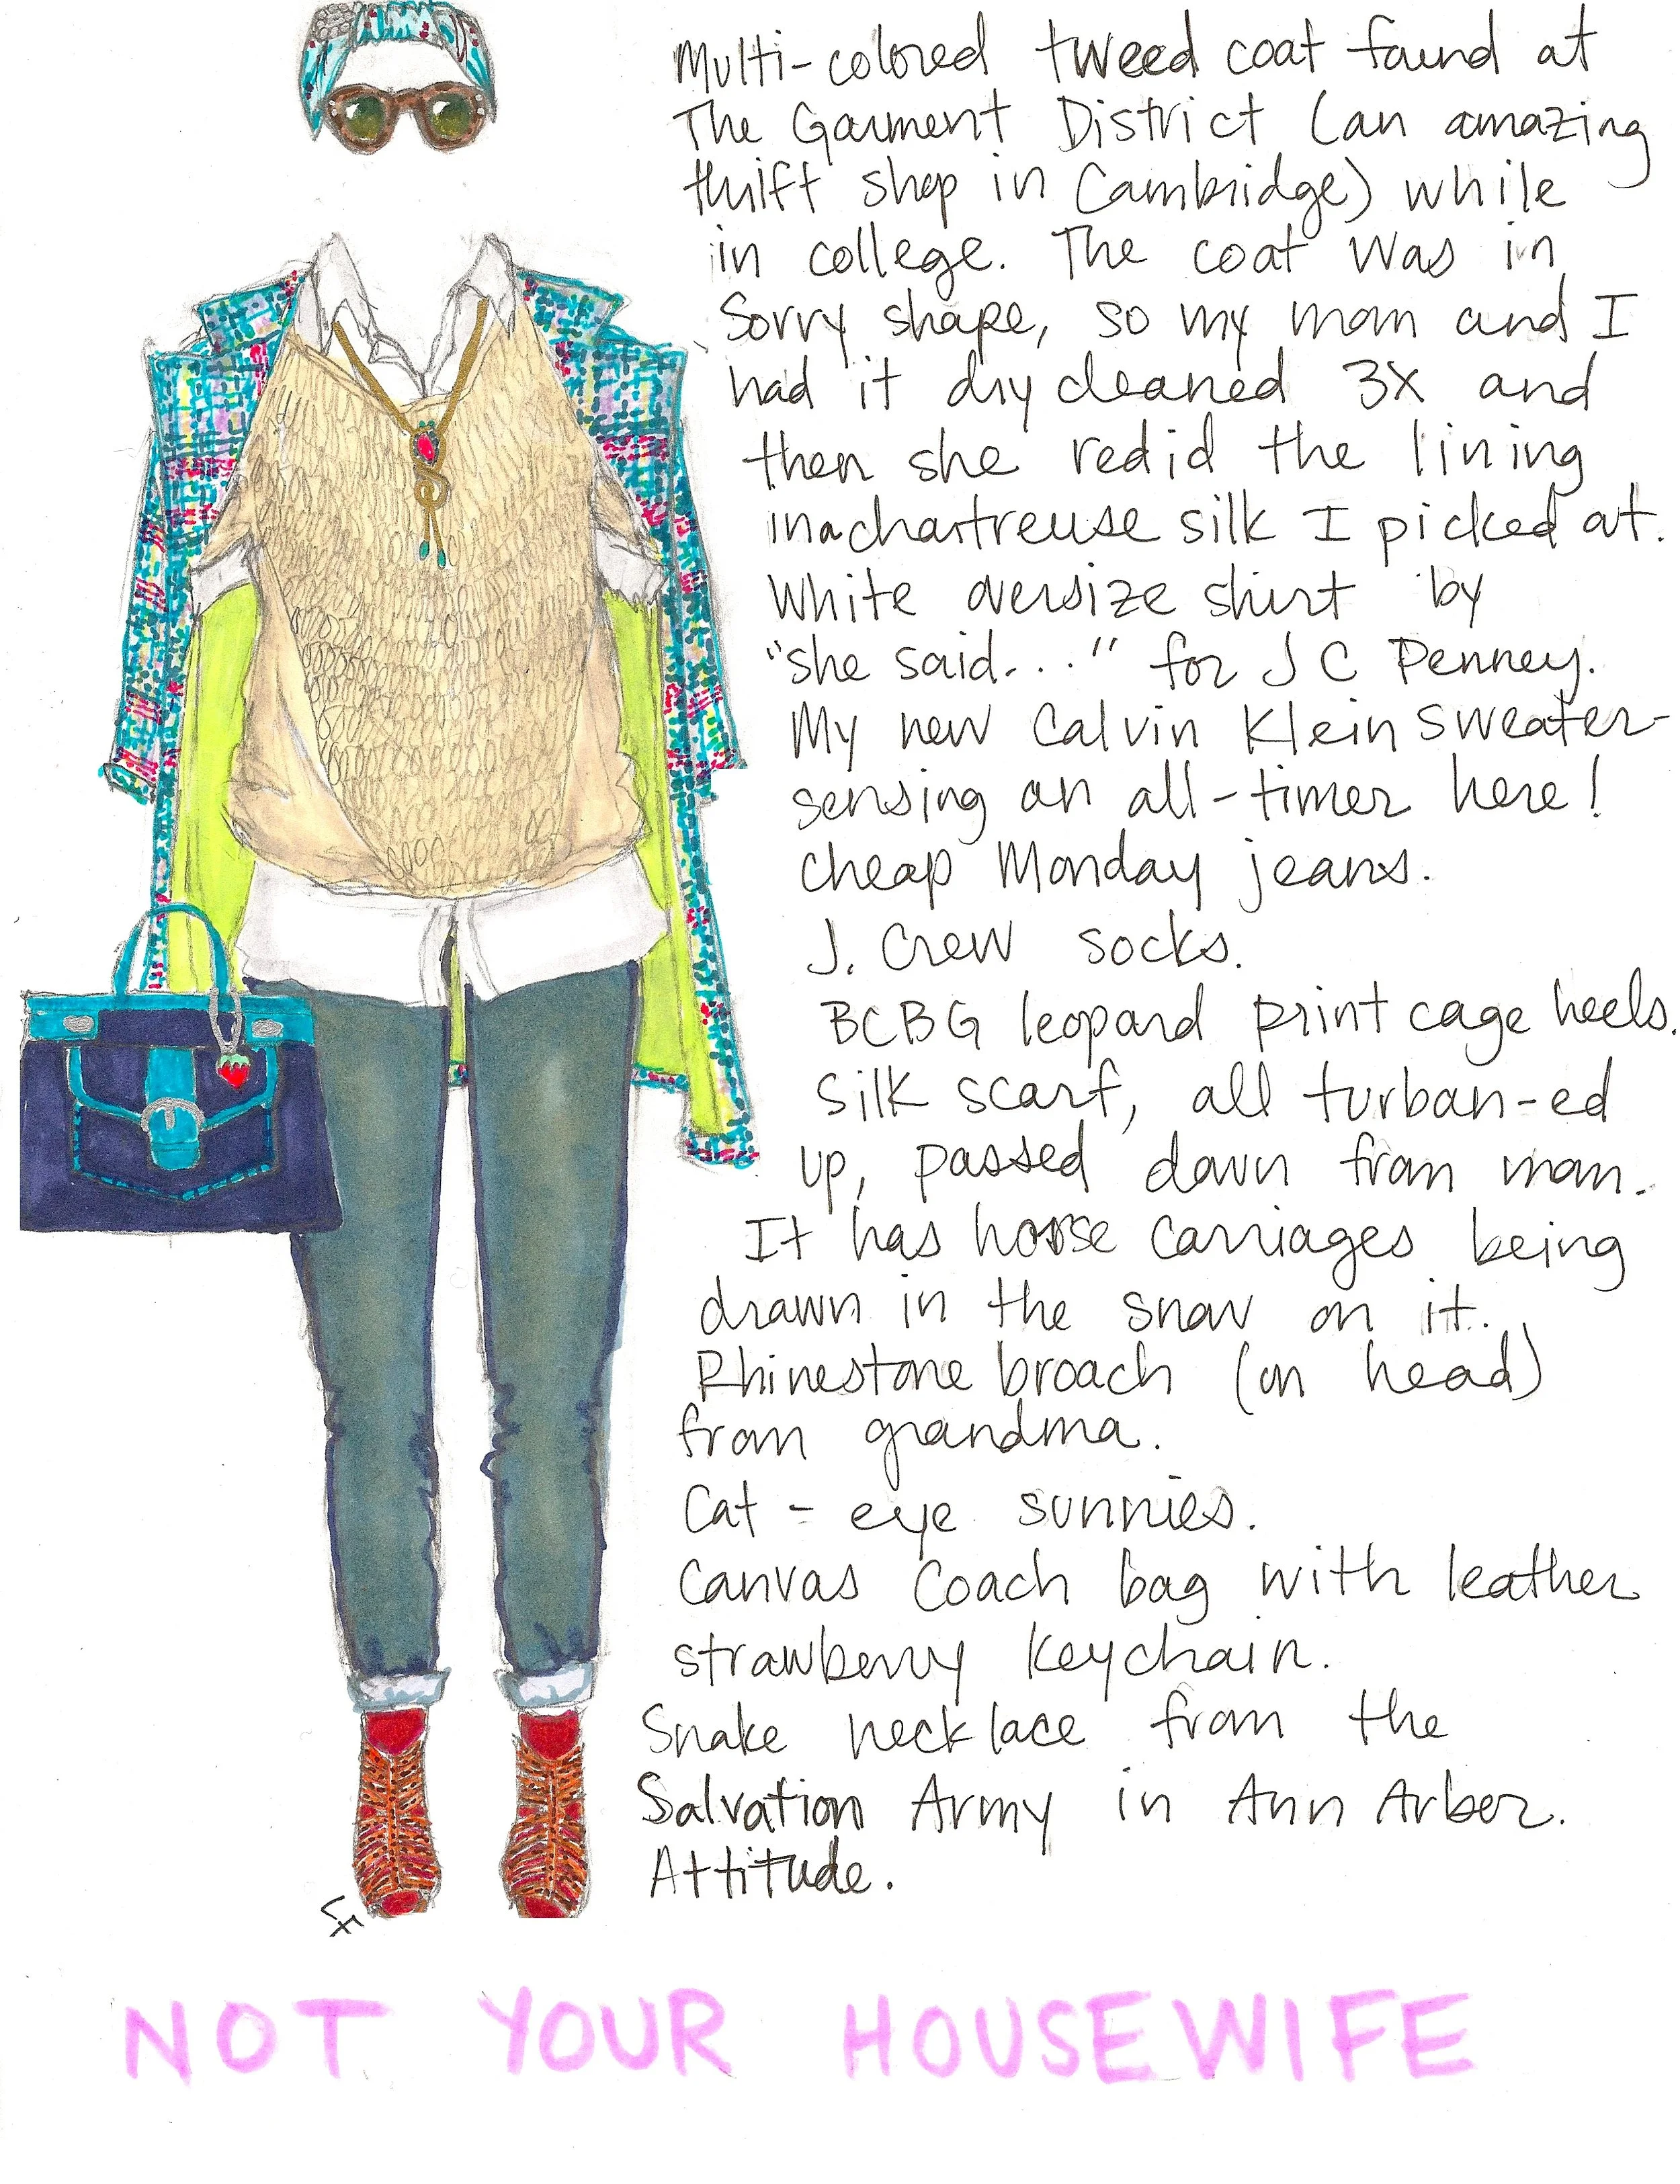 Multi-colored tweed coat found at
The Garment District (an amazing
thrift shop in Cambridge) while
in college. The coat was in
sorry shape, so my mom and I
had it dry cleaned 3X and
then she redid the lining
in a chartreuse silk I picked out.
White oversize shirt by
"she said..." for J C Penney.
My new Calvin Klein sweater-
sensing an all-timer here!
Cheap Monday jeans.
J. Crew socks.
BCBG leopard print cage heels.
Silk scarf, all turban-ed
up, passed down from mom.
It has horse carriages being
drawn in the snow on it.
Rhinestone broach (on head)
from grandma.
Cat-eye sunnies.
Canvas Coach bag with leather
strawberry keychain.
Snake necklace from the
Salvation Army in Ann Arbor.
Attitude.
LF
NOT YOUR HOUSEWIFE